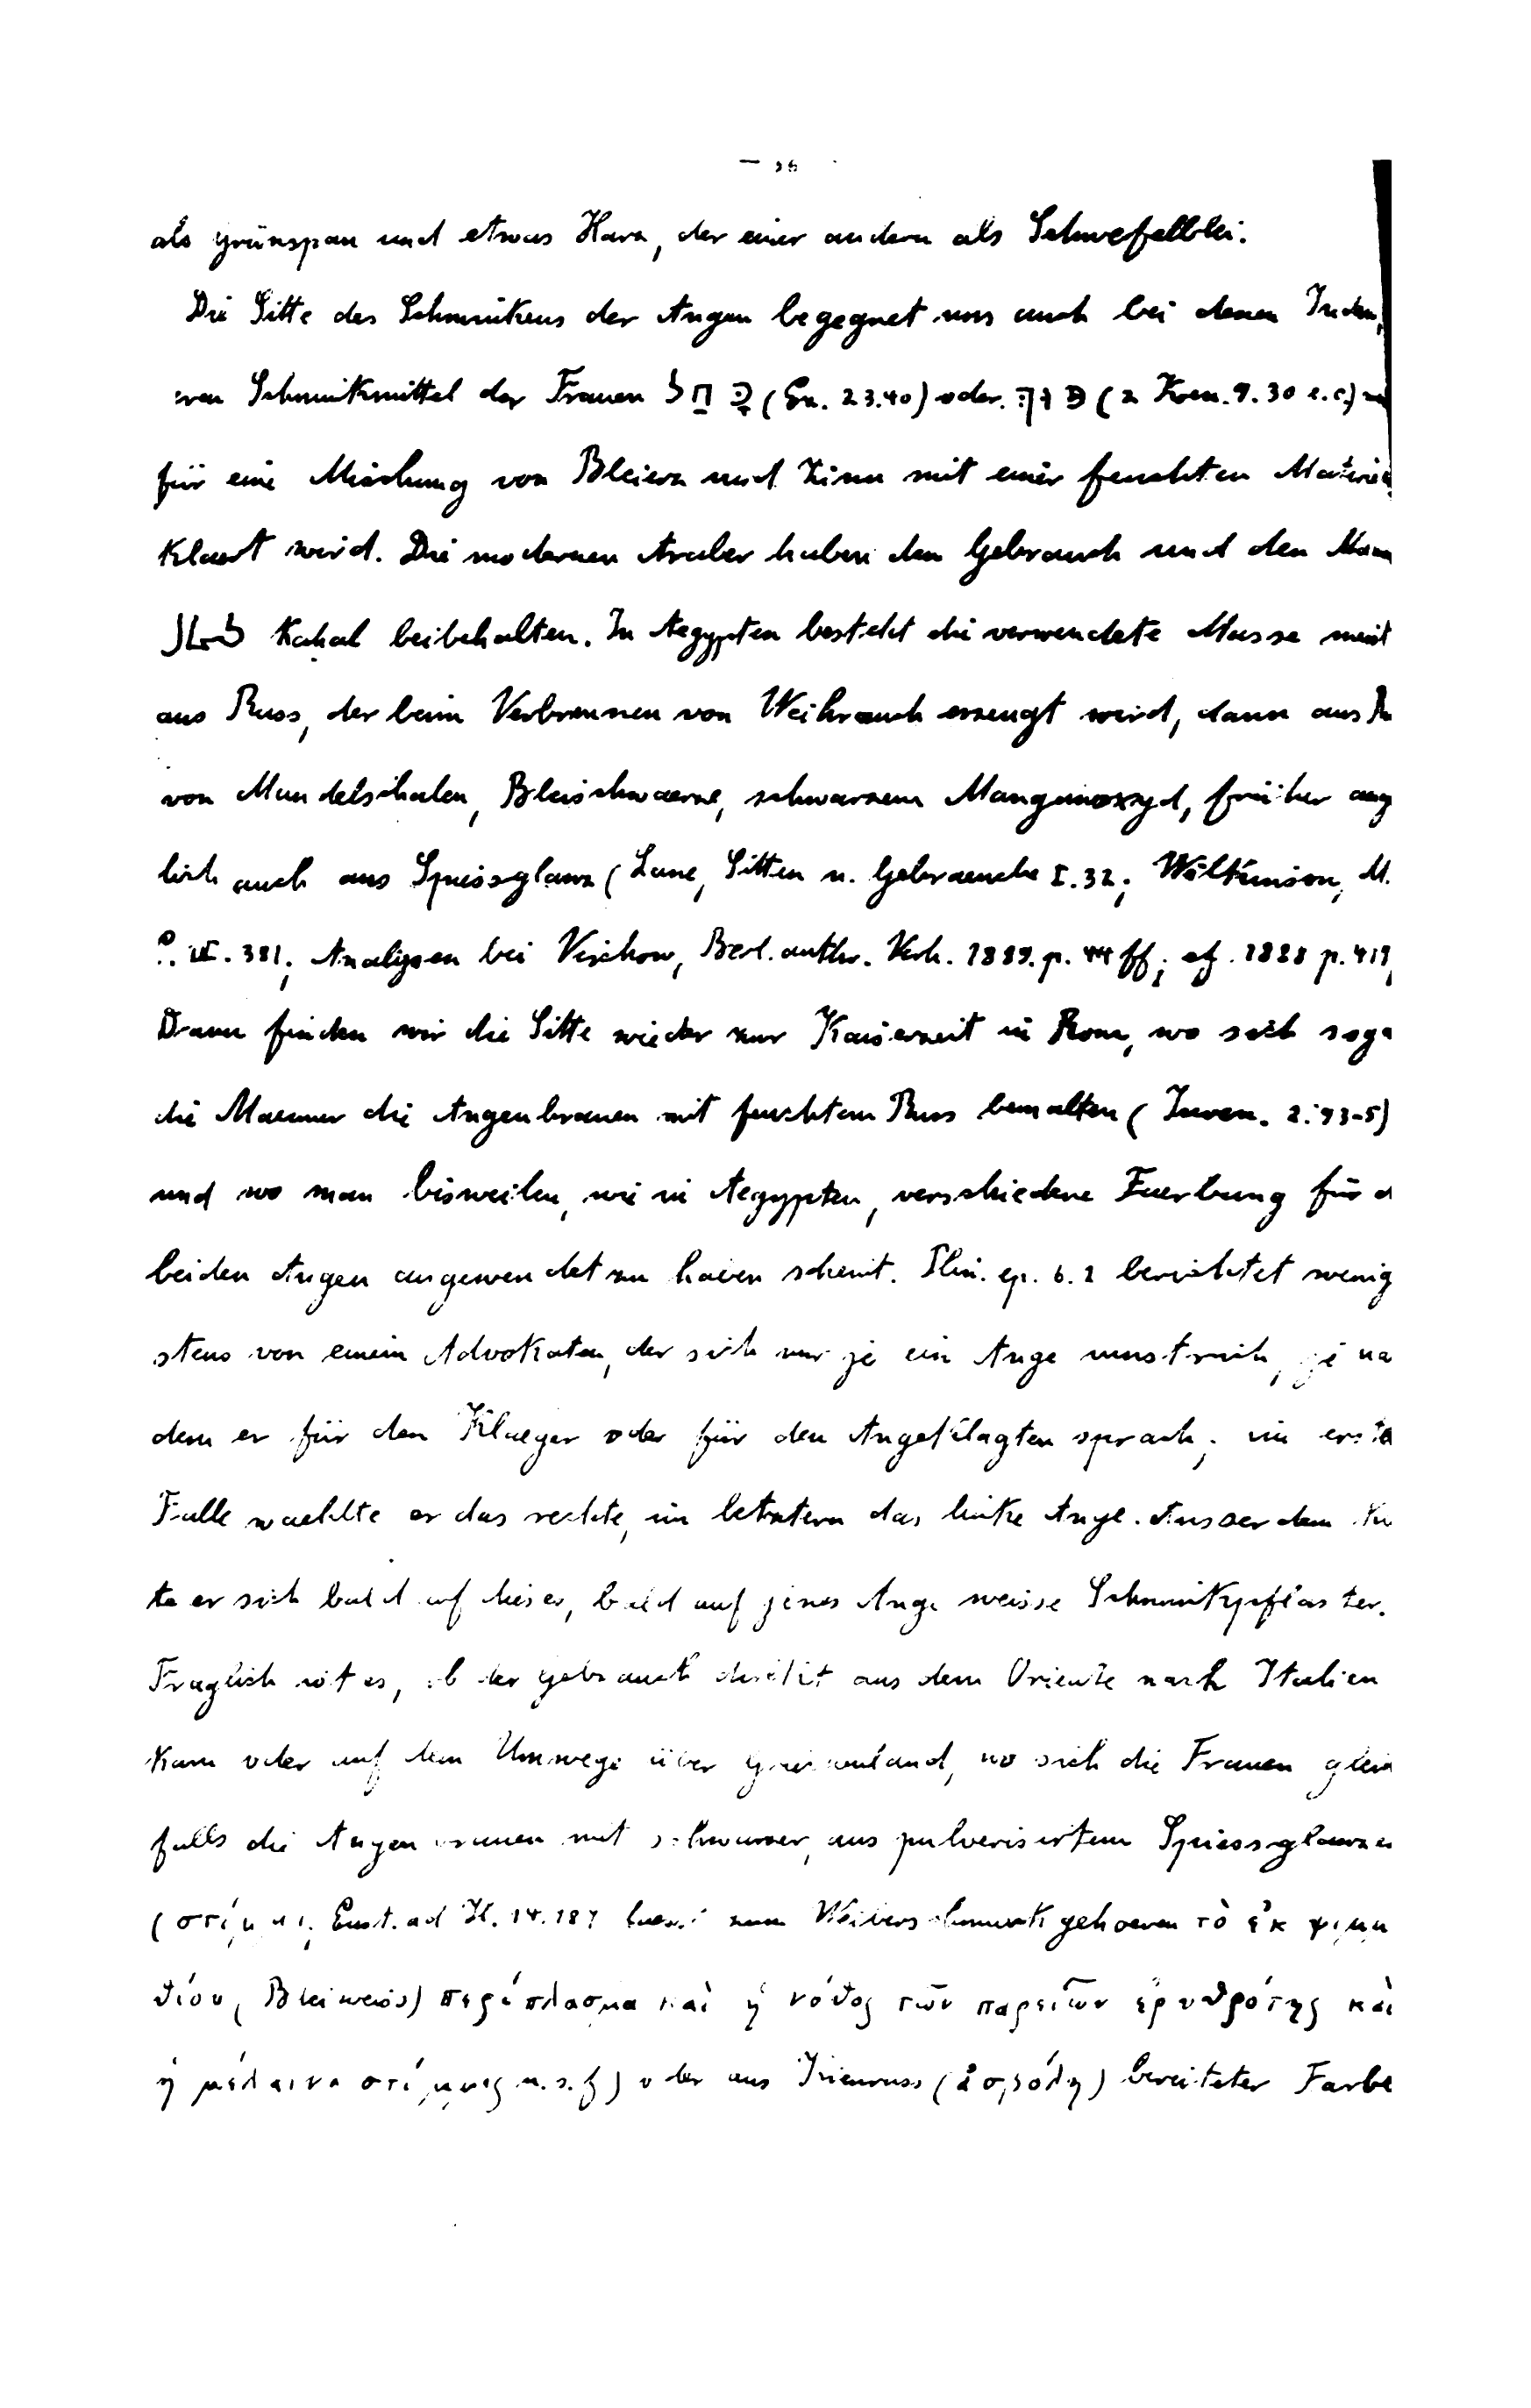 — 36
als Grünspan und etwas Harz, der einer andern als Schwefelblei.
Die Sitte des Schminkens der Augen begegnet uns auch bei denen Juden,
ren Schminkmittel der Frauen כחל (Ez. 23.40) oder פוך (2 Koen. 9.30 e.c.)
für eine Mischung von Bleierz und Zinn mit einer feuchten Materie
klaert wird. Die modernen Araber haben den Gebrauch und den Nam
كحل Kahal beibehalten. In Aegypten besteht die verwendete Masse meist
aus Russ, der beim Verbrennen von Weihrauch erzeugt wird, dann aus Ru
von Mandelschalen, Bleischwaerze, schwarzem Manganoxyd, früher ang
lich auch aus Spiessglanz (Lane, Sitten u. Gebraeuche I. 32; Wilkinson, M.
P. II. 381; Analysen bei Virchow, Berl. anthr. Verh. 1889. p. 44 ff; cf. 1888 p. 419,
Dann finden wir die Sitte wieder zur Kaiserzeit in Rom, wo sich soga
die Maenner die Augenbrauen mit feuchtem Russ bemalten (Juven. 2. 93-5)
und wo man bisweilen, wie in Aegypten, verschiedene Faerbung für d
beiden Augen angewendet zu haben scheint. Plin. ep. 6. 2 berichtet wenig
stens von einem Advokaten, der sich nur je ein Auge umstrich, je na
dem er für den Klaeger oder für den Angeklagten sprach; im erste
Falle waehlte er das rechte, im letztern das linke Auge. Ausserdem
te er sich bald auf dieses, bald auf jenes Auge weisse Schminkpflaster.
Fraglich ist es, ob der Gebrauch direkt aus dem Oriente nach Italien
kam oder auf dem Umwege über Griechenland, wo sich die Frauen gleich
falls die Augenbrauen mit schwarzer, aus pulverisirtem Spiessglanze
(στίμμι; Eust. ad Il. 14. 187 zum Weiberschmuck gehoeren τὸ ἐκ ψιμμ
θίου, Bleiweiss) περίπλασμα καὶ ἡ νόθος τῶν παρειῶν ἐρυθρότης καὶ
ἡ μέλαινα στίμμις u.s.f) oder aus Kienruss (ἀσβόλη) bereiteter Farbe